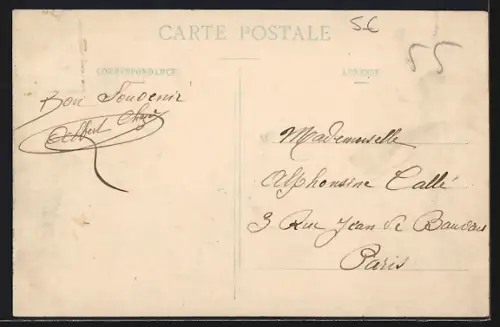 5€
CARTE POSTALE
55
CORRESPONDANCE
ADRESSE
Bon Souvenir
Albert
Mademoiselle
Alphonsine Callé
3 Rue Jean de Bauvais
Paris